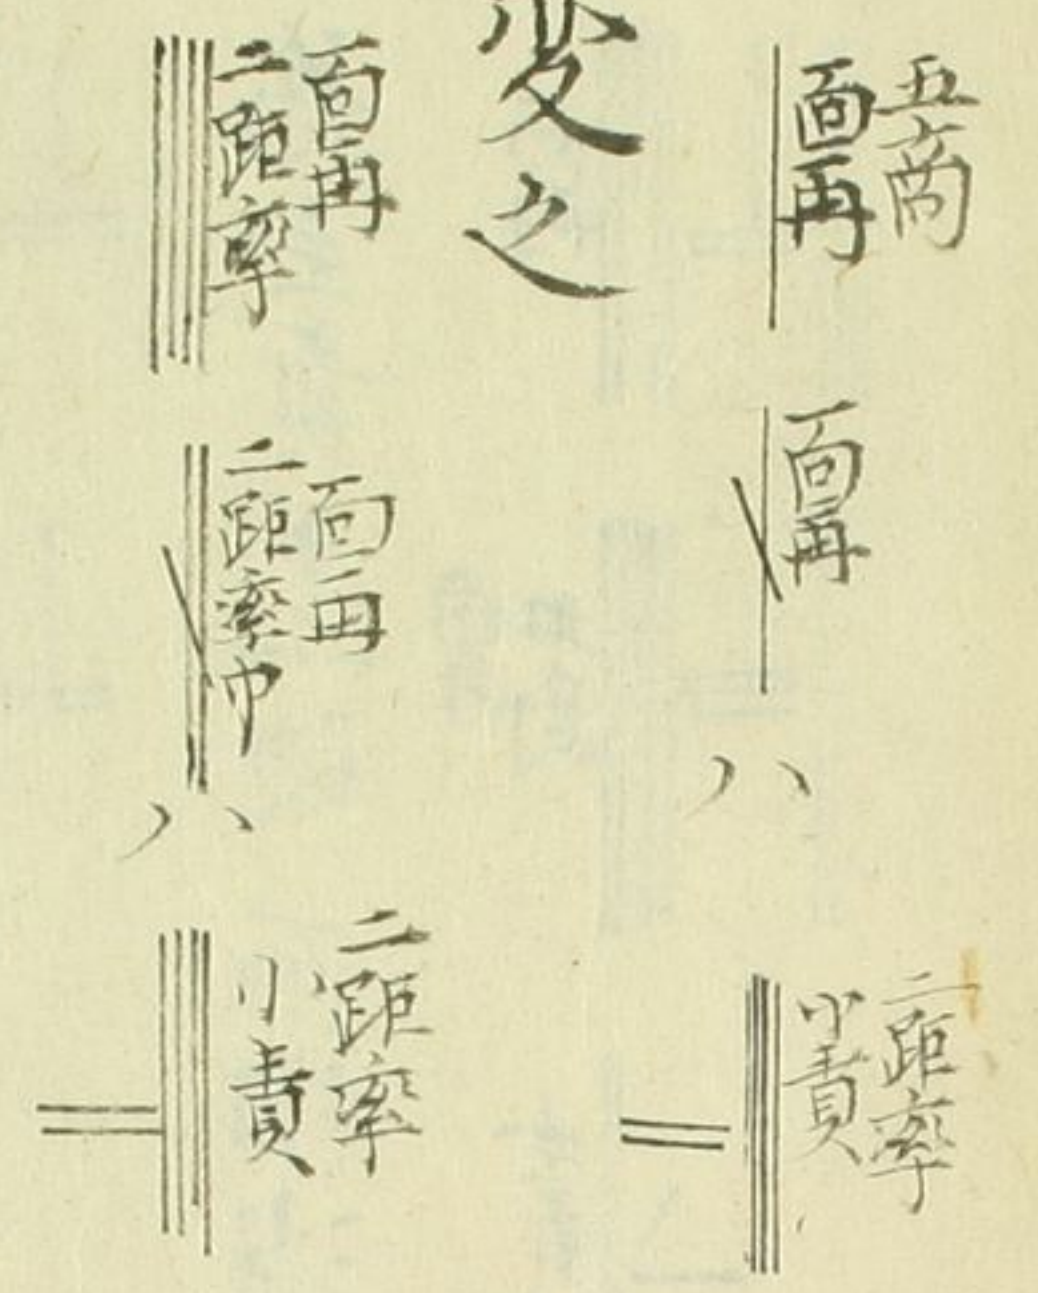 五商
面再
面再
八
二距率
小責
変之
面再
二距率
面再
二距率巾
八
二距率
小責